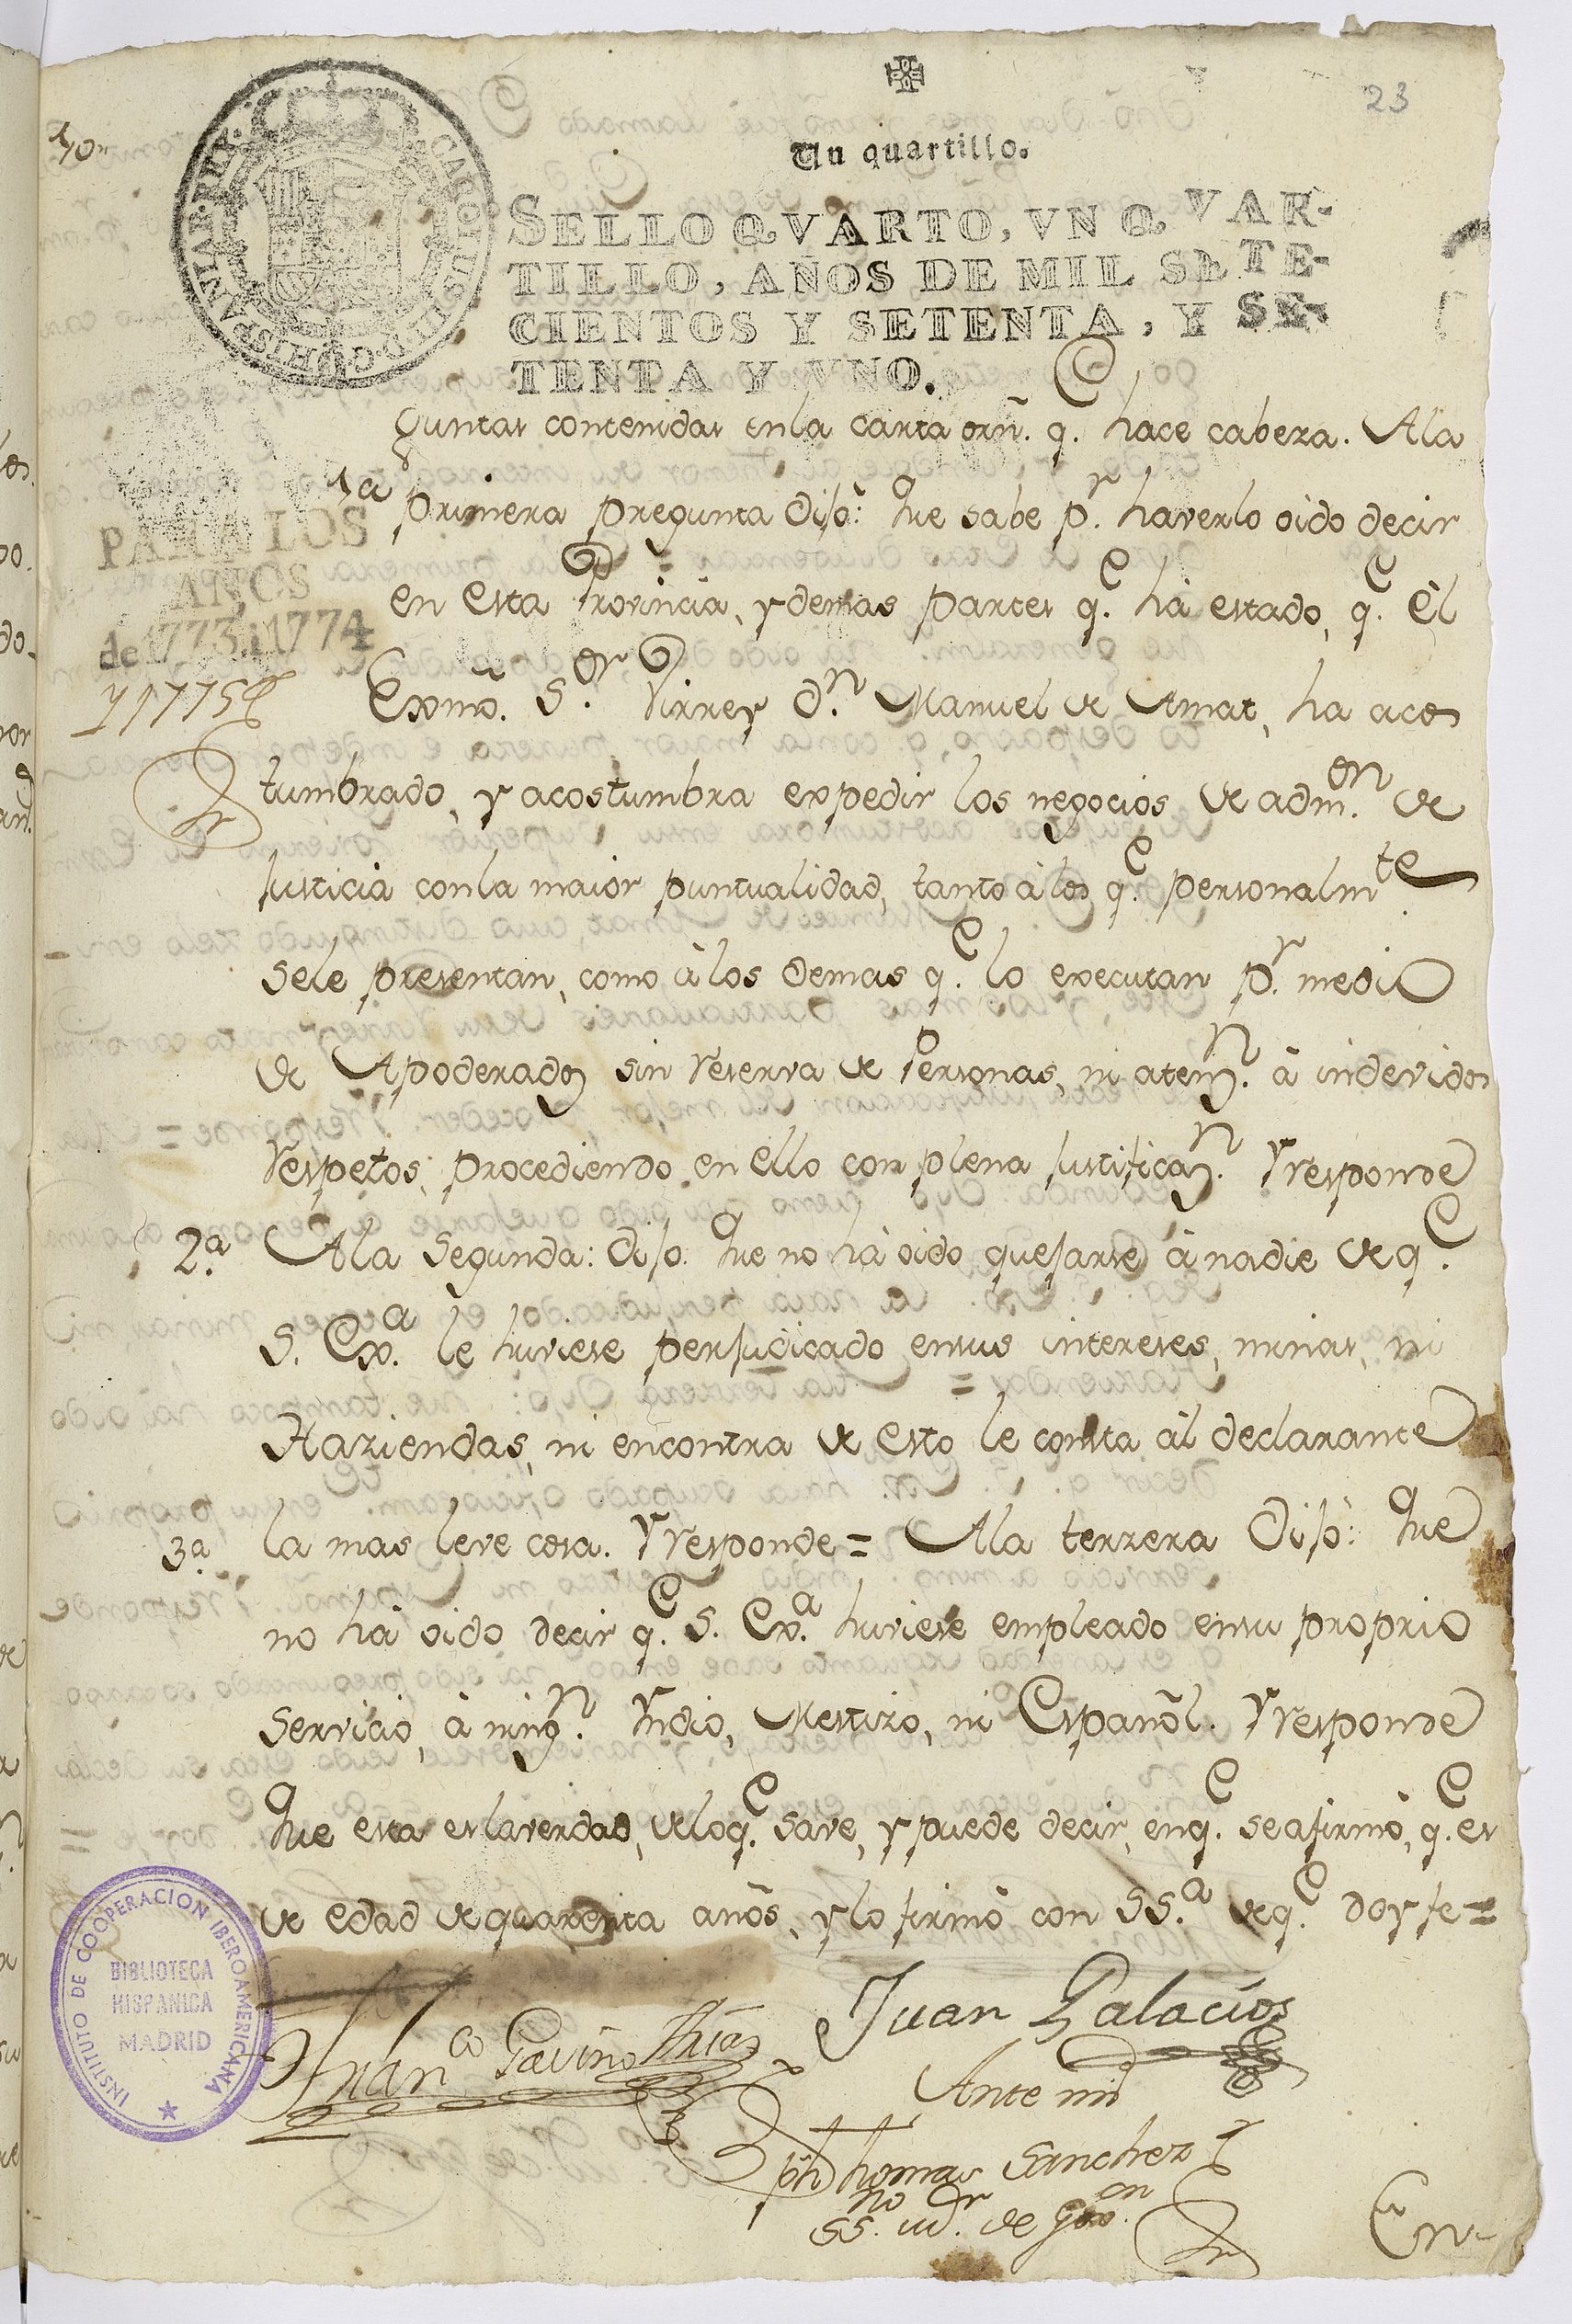 23
Un quartillo.
CAROLUS III D. G. HISPANIAR. REX
SELLO QVARTO, VN QVAR-
TILLO, AÑOS DE MIL SETE-
CIENTOS Y SETENTA, Y SE-
TENTA Y VNO.
guntas contenidas enla carta orñ. q. hace cabeza. Ala
1ª primera pregunta dijo: Que sabe pr. haverlo oido decir
PARA LOS
AÑOS
de 1773, i 1774
en esta Provincia, y demas partes qe. há estado, qe. èl
Exmõ. Sor. Virrey Dn. Manuel de Amat, ha acos
tumbrado, y acostumbra expedir los negocios de admon. de
Justicia conla maior puntualidad, tanto àlos qe. personalmte.
sele presentan, como àlos demas qe. lo executan pr. medio
de Apoderados sin reserva de Personas, ni atenn. à indevidos
respetos, procediendo en ello con plena justifican. Y responde
2ª. Ala segunda: Dijo. Que no hà oido quejarse à nadie de qe.
S. Exa. le huviese perjudicado ensus intereses, minas, ni
Haziendas, ni encontra de esto le consta àl declarante
3ª la mas leve cosa. Y responde = Ala terzera Dijo: Que
no hà oido decir qe. S. Exa. huviese empleado ensu proprio
servicio, à ningn. Yndio, Mestizo, ni Español. Y responde
Que esta es laverdad, deloqe. save, y puede decir, enqe. seafirmò, q. es
de edad de quarenta años, y lo firmò con SSa. deqe. doy fe =
Juan Palacios
Franco Gavino Arias
Ante mi
Jph thomas Sanchez
SSno. mr. de Gon.
En
INSTITUTO DE COOPERACION IBEROAMERICANA
BIBLIOTECA
HISPANICA
MADRID